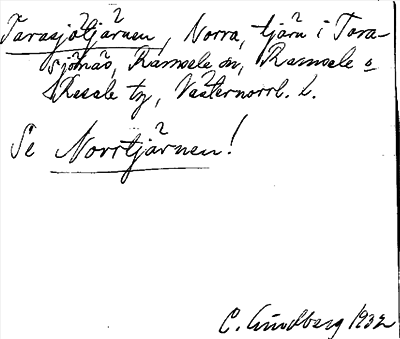 Tarasjötjärnen, Norra, tjärn i Tara-
sjömås, Ramsele sn, Ramsele o
Resele tg, Västernorrl. L.
Se Norrtjärnen!
C. Lundberg 1932